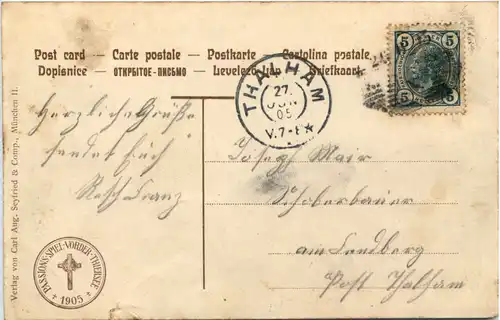 Post card – Carte postale – Postkarte – Cartolina postale
Dopisnice – ОТКРЫТОЕ-ПИСЬМО – Levelező-Lap – Briefkaart
5 5
5 5
THALHAM
27.
JUN
05
V.7-8
Herzliche Grüße
sendet Euch
Franz
Josef Mair
Schoberbauer
am Landberg
Post Thalham
Verlag von Carl Aug. Seyfried & Comp., München II.
PASSIONS-SPIEL-VORDER-THIERSEE
1905